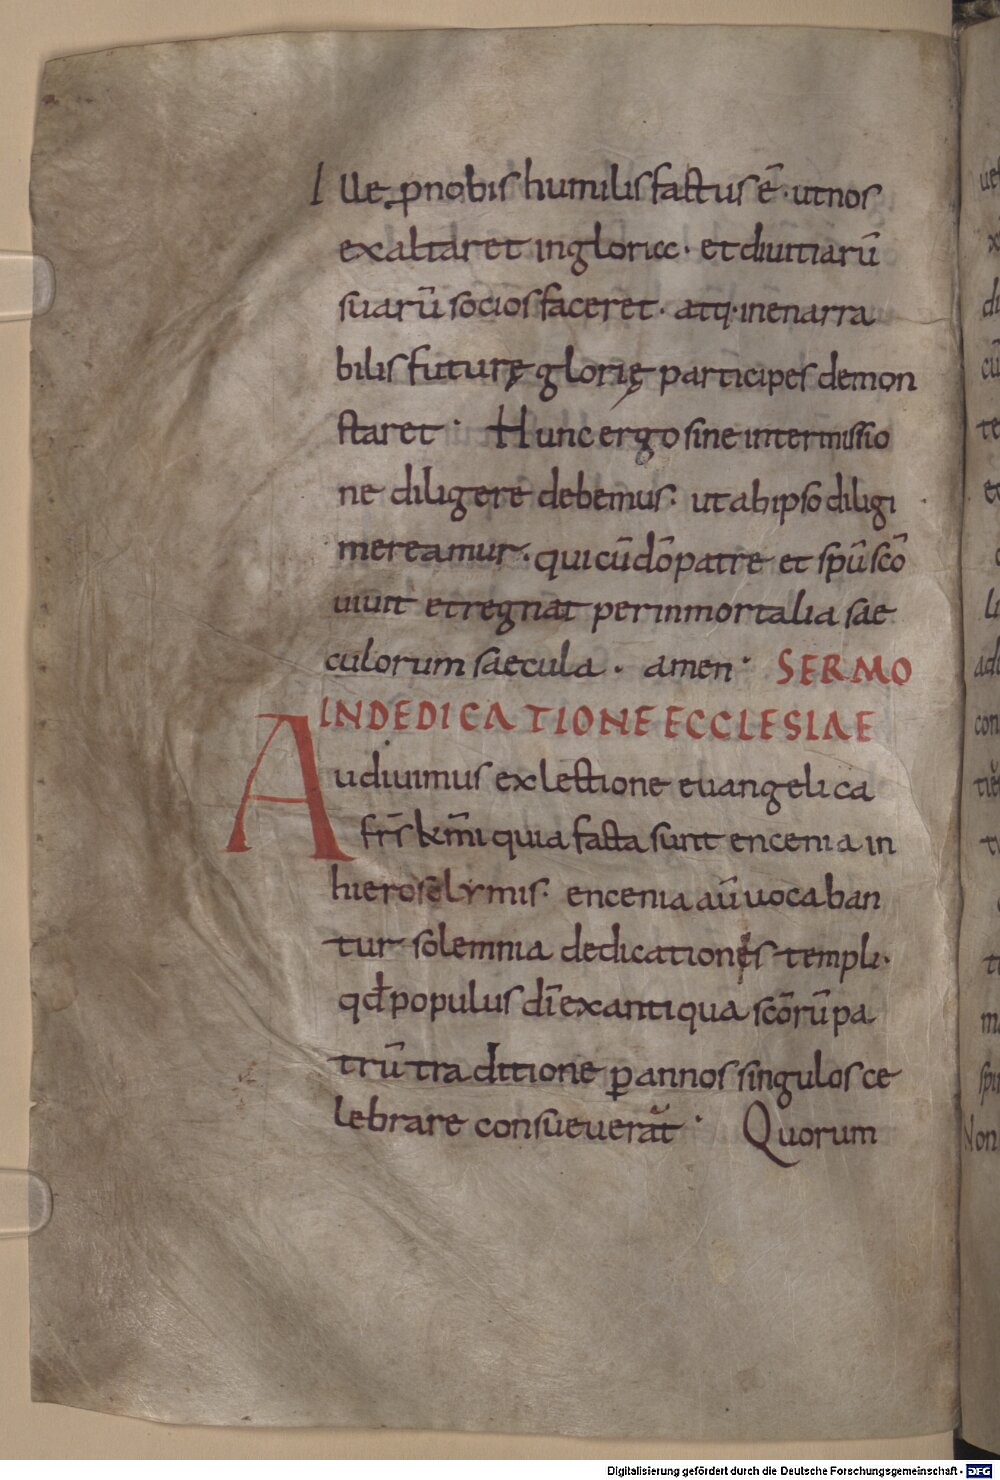 Ille ꝓnobis humilis factus ē· ut nos
exaltaret in gloria· et diuitiarū
suarū socios faceret· atq· inenarra
bilis futurę glorię participes demon
staret· Hunc ergo sine intermissio
ne diligere debemus· ut ab ipso diligi
mereamur· qui cū dō patre et spū scō
uiuit et regnat per inmortalia sae
culorum saecula· amen· SERMO
IN DEDICATIONE ECCLESIAE
Audiuimus ex lectione euangelica
frs̄ km̄i quia facta sunt encenia in
hierosolymis· encenia aū uocaban
tur solemnia dedicationis templi·
qđ populus dī ex antiqua scōrū pa
trū traditione ꝑ annos singulos ce
lebrare consueuerāt· Quorum
Digitalisierung gefördert durch die Deutsche Forschungsgemeinschaft - DFG